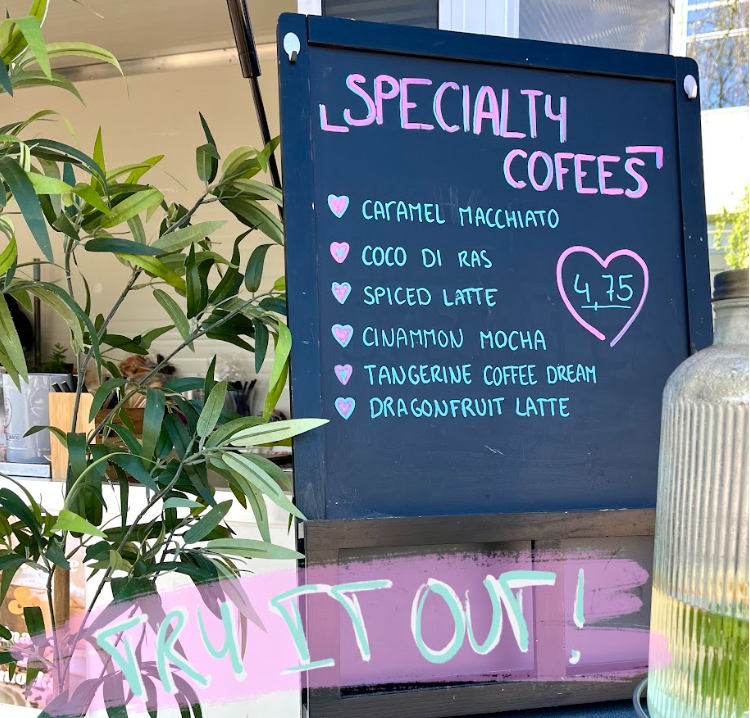 SPECIALTY
COFEES
CARAMEL MACCHIATO
COCO DI RAS
SPICED LATTE
4,75
CINAMMON MOCHA
TANGERINE COFFEE DREAM
DRAGONFRUIT LATTE
TRY IT OUT!